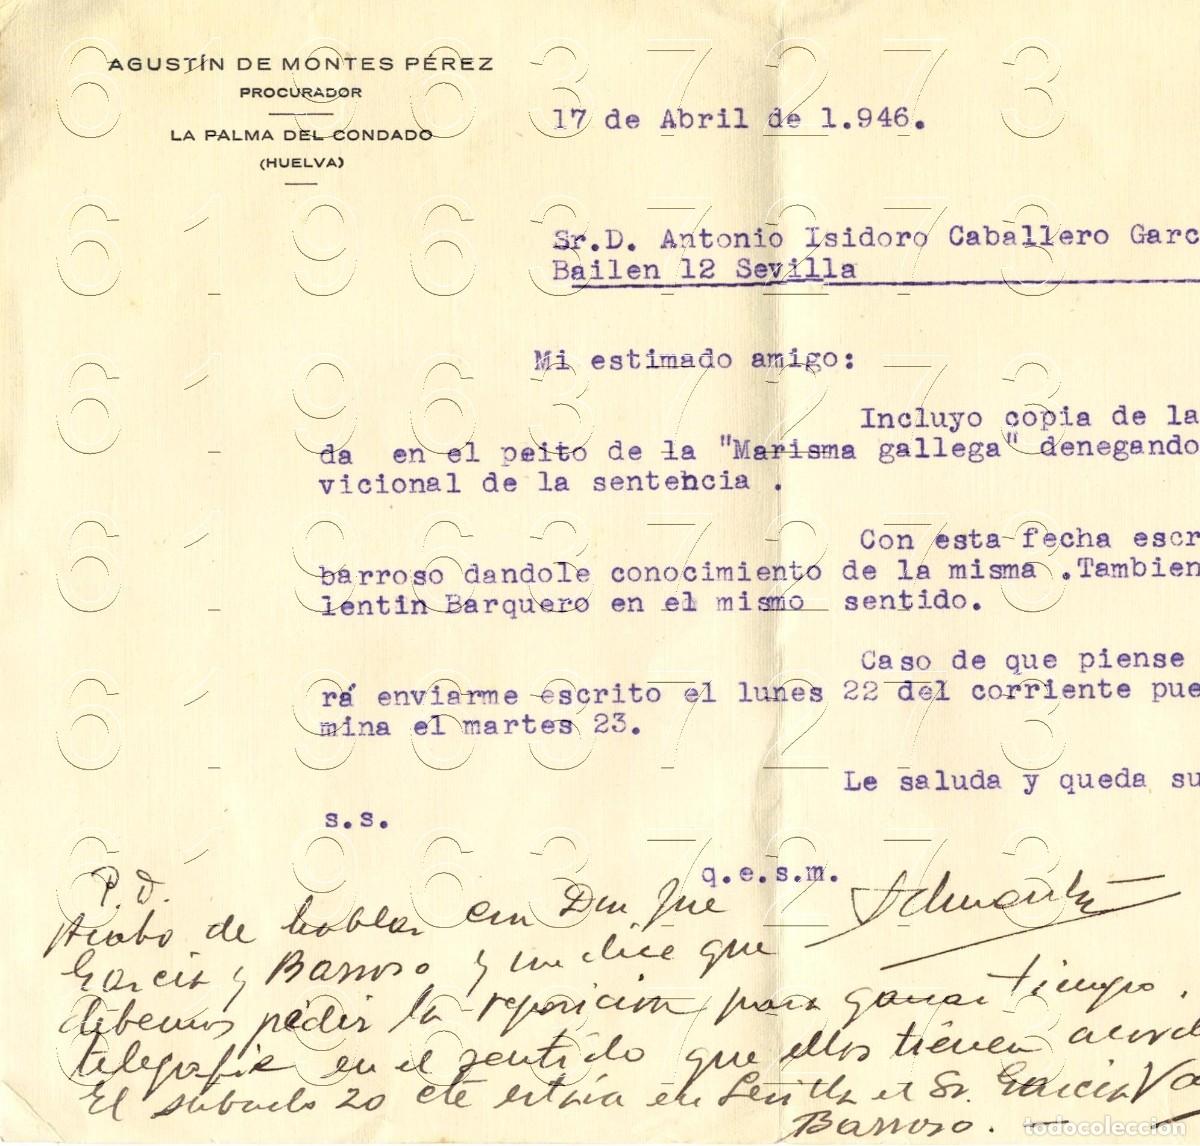 AGUSTÍN DE MONTES PÉREZ
PROCURADOR
LA PALMA DEL CONDADO
(HUELVA)
17 de Abril de 1.946.
Sr.D. Antonio Isidoro Caballero Garc
Bailen 12 Sevilla
Mi estimado amigo:
Incluyo copia de la
da en el peito de la "Marisma gallega" denegando
vicional de la sentencia .
Con esta fecha escr
barroso dandole conocimiento de la misma .Tambien
lentin Barquero en el mismo sentido.
Caso de que piense
rá enviarme escrito el lunes 22 del corriente pue
mina el martes 23.
Le saluda y queda su
s.s.
q.e.s.m.
P.D.
Acabo de hablar con Don Jue
Garcia y Barroso y me dice que
debemos pedir la reposicion para ganar tiempo.
telegrafie en el sentido que ellos tienen acord
El sabado 20 cte estria en Sevilla el Sr. Garcia Va
Barroso.
6 1 9 6 3 7 2 7 3
6 1 9 6 3 7 2 7 3
6 1 9 6 3 7 2 7 3
6 1 9 6 3 7 2 7 3
6 1 9 6 3 7 2 7 3
6 1 9 6 3 7 2 7 3
todocoleccion